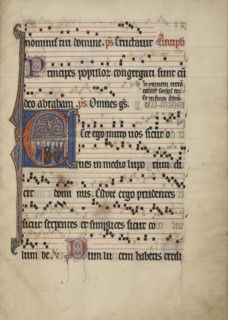 nominis tui domine. ps Eructauit Principes
Principes populor congregati sunt cū
deo abraham. ps. Omnes gs.
Ecce ego mitto uos sicut o
ues in medio lupo rum di
cit domi nus. Estote ergo prudentes
sicut serpentes et simplices sicut co
lum be. V Dum lu cem habetis credi